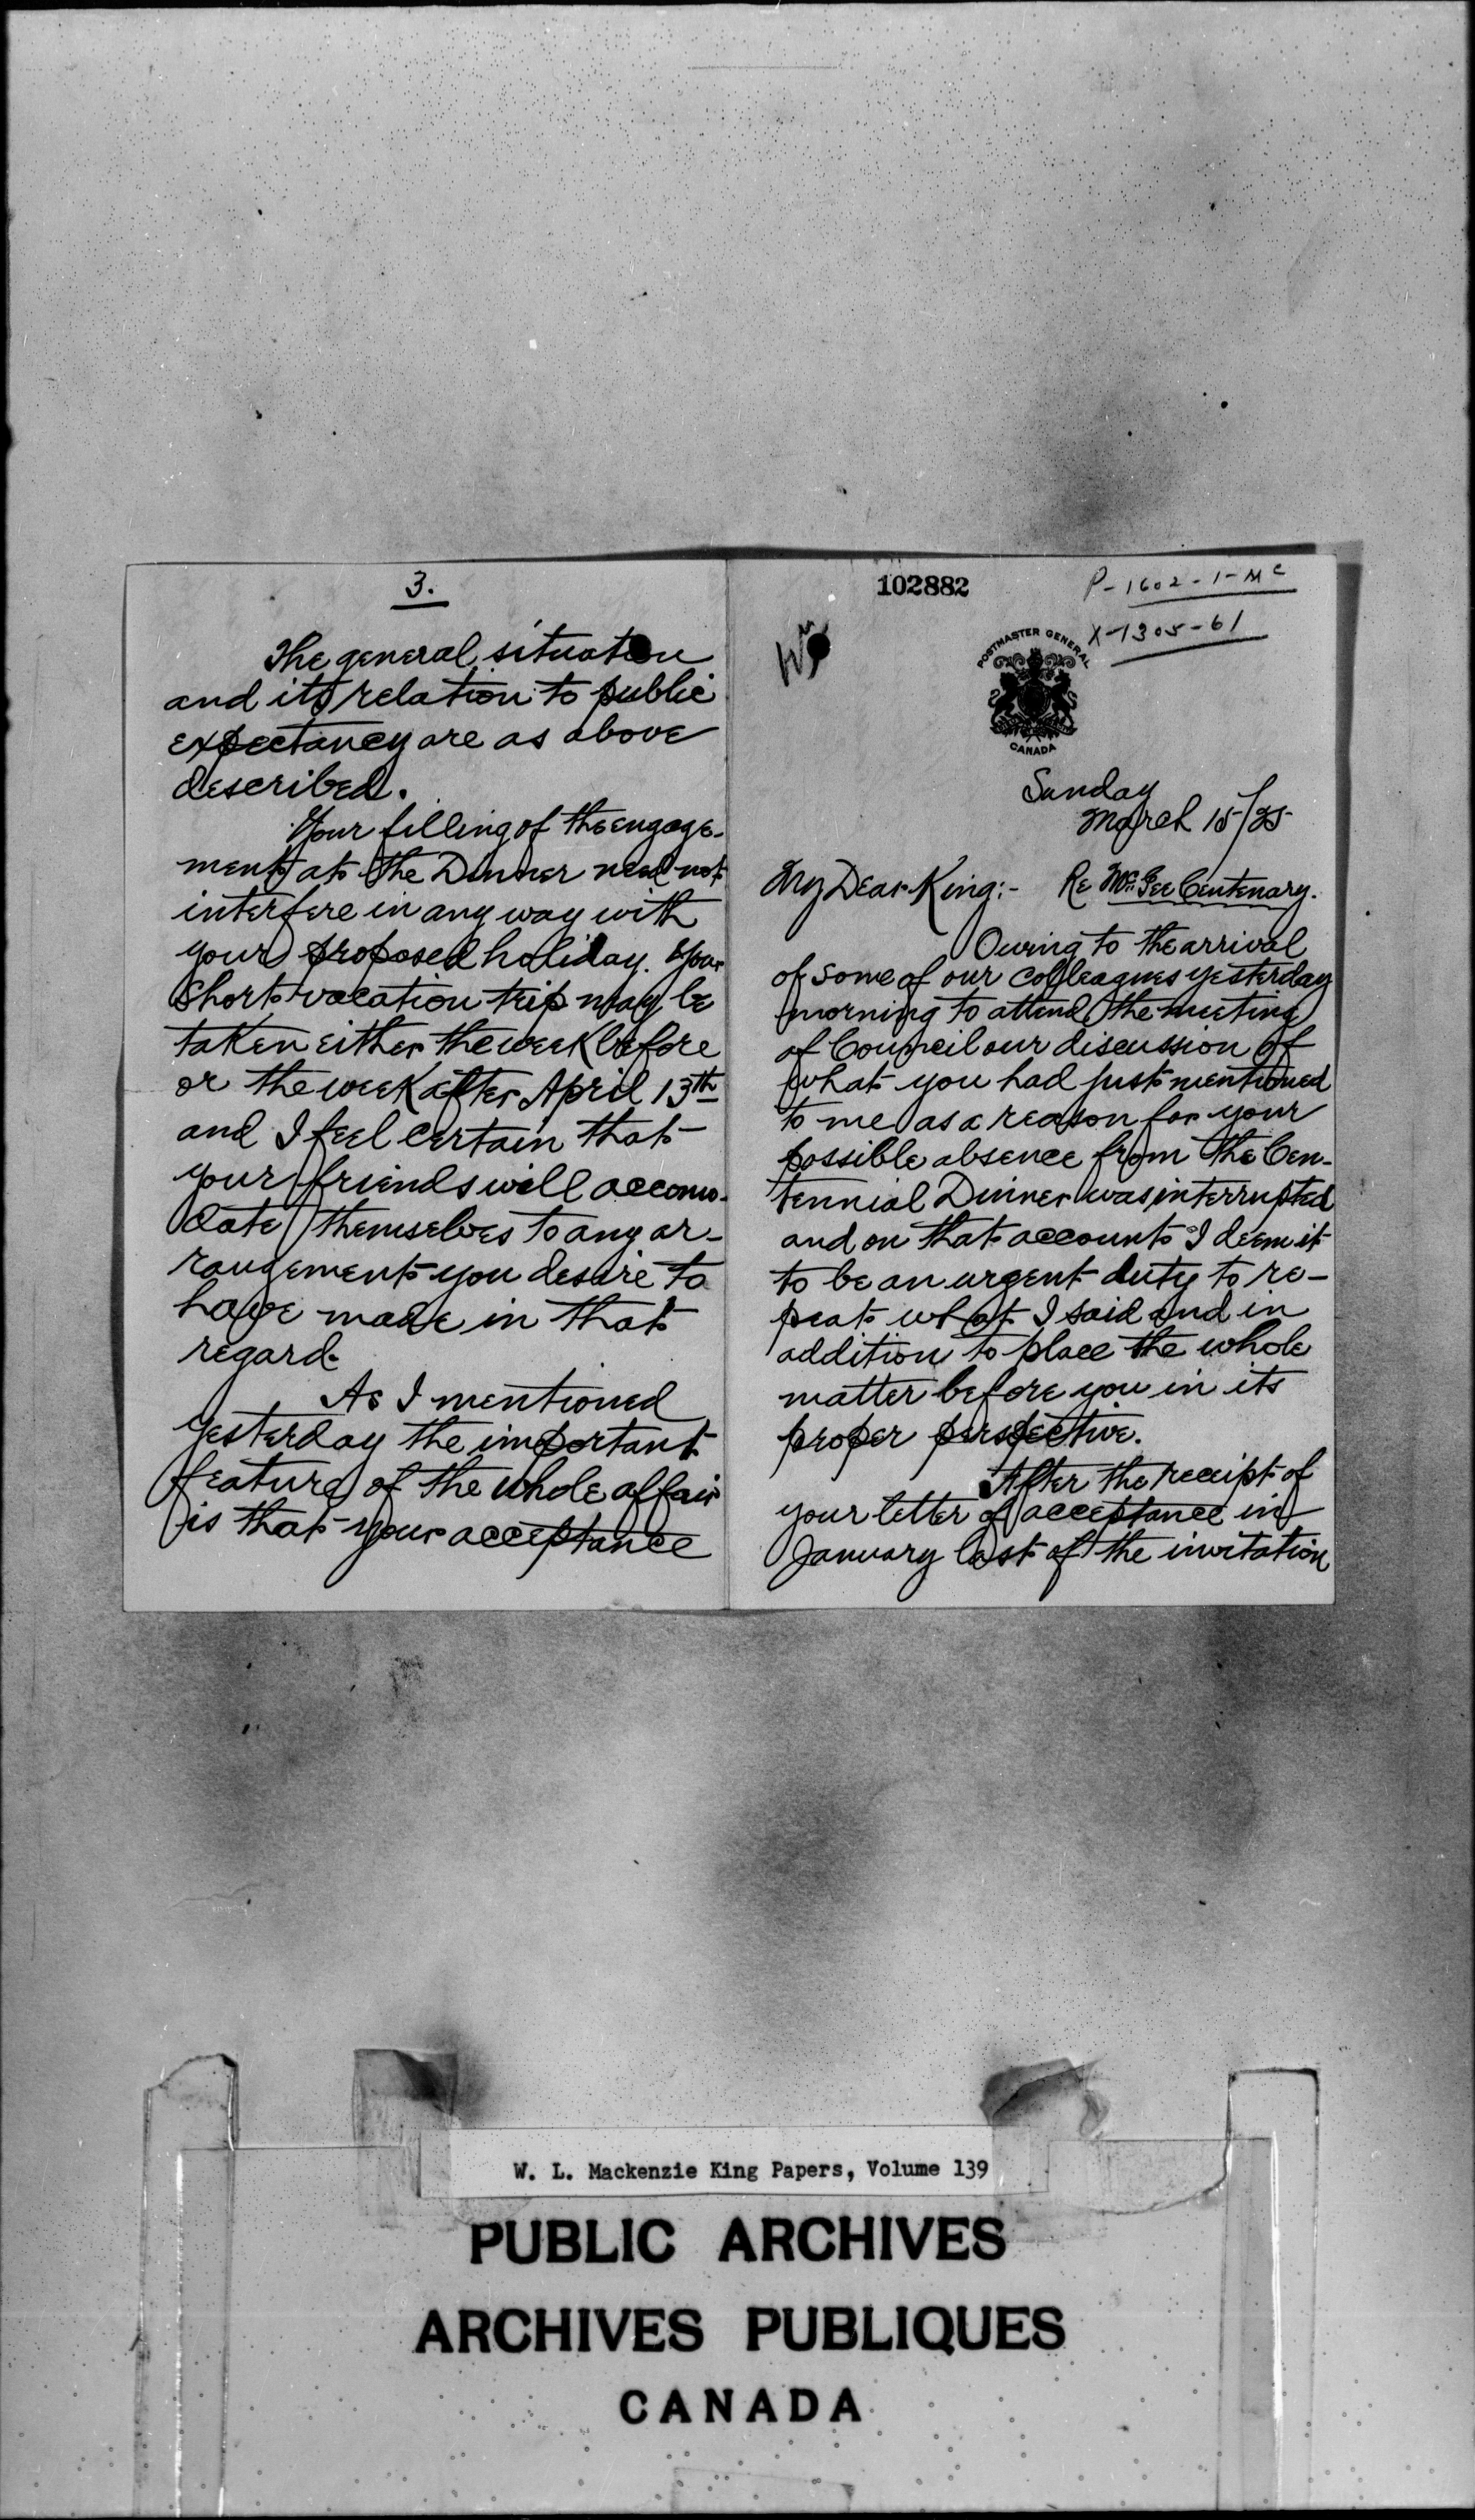 3.
The general situation
and its relation to public
expectancy are as above
described.
Your filling of the engage-
ment at the Dinner need not
interfere in any way with
your proposed holiday. Your
short vacation trip may be
taken either the week before
or the week after April 13th
and I feel certain that
your friends will accomo-
date themselves to any ar-
rangement you desire to
have made in that
regard.
As I mentioned
yesterday the important
feature of the whole affair
is that your acceptance
102882
P-1602-1-Mc
X-1305-61
POSTMASTER GENERAL
CANADA
Sunday
March 15/25
My Dear King:- Re McGee Centenary.
Owing to the arrival
of some of our colleagues yesterday
morning to attend the meeting
of Council our discussion of
what you had just mentioned
to me as a reason for your
possible absence from the Cen-
tennial Dinner was interrupted
and on that account I deem it
to be an urgent duty to re-
peat what I said and in
addition to place the whole
matter before you in its
proper perspective.
After the receipt of
your letter of acceptance in
January last of the invitation
W. L. Mackenzie King Papers, Volume 139
PUBLIC ARCHIVES
ARCHIVES PUBLIQUES
CANADA